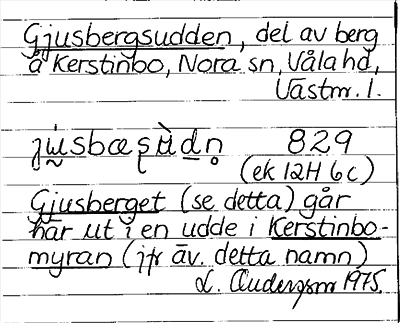 Gjusbergsudden, del av berg
å Kerstinbo, Nora sn, Våla hd,
Västm. l.
829
(ek 12H 6c)
Gjusberget (se detta) går
här ut i en udde i Kerstinbo-
myran (jfr äv. detta namn)
L. Anderson 1975.